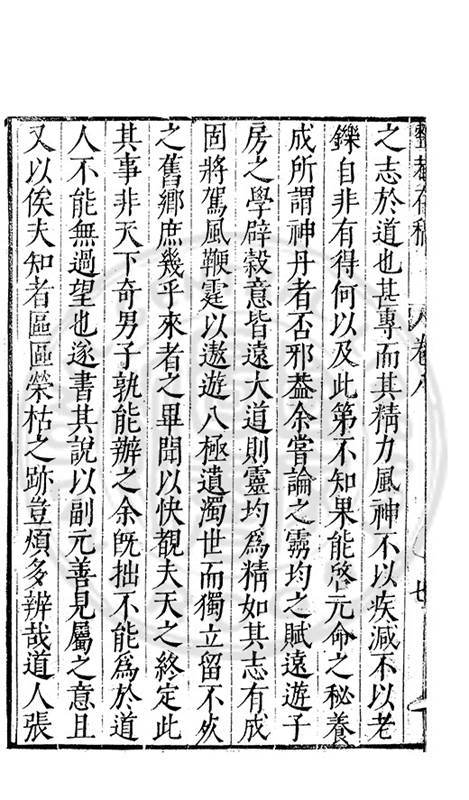 整菴存稿 卷八
之志於道也甚專而其精力風神不以疾減不以老
鑠自非有得何以及此第不知果能啓元命之秘養
成所謂神丹者否邪葢余嘗論之靈均之賦遠遊子
房之學辟穀意皆遠大道則靈均爲精如其志有成
固將駕風鞭霆以遨遊八極遺濁世而獨立留不死
之舊鄉庶幾乎來者之畢聞以快覩夫天之終定此
其事非天下奇男子孰能辦之余旣拙不能爲於道
人不能無過望也遂書其說以副元善見屬之意且
又以俟夫知者區區榮枯之跡豈煩多辨哉道人張